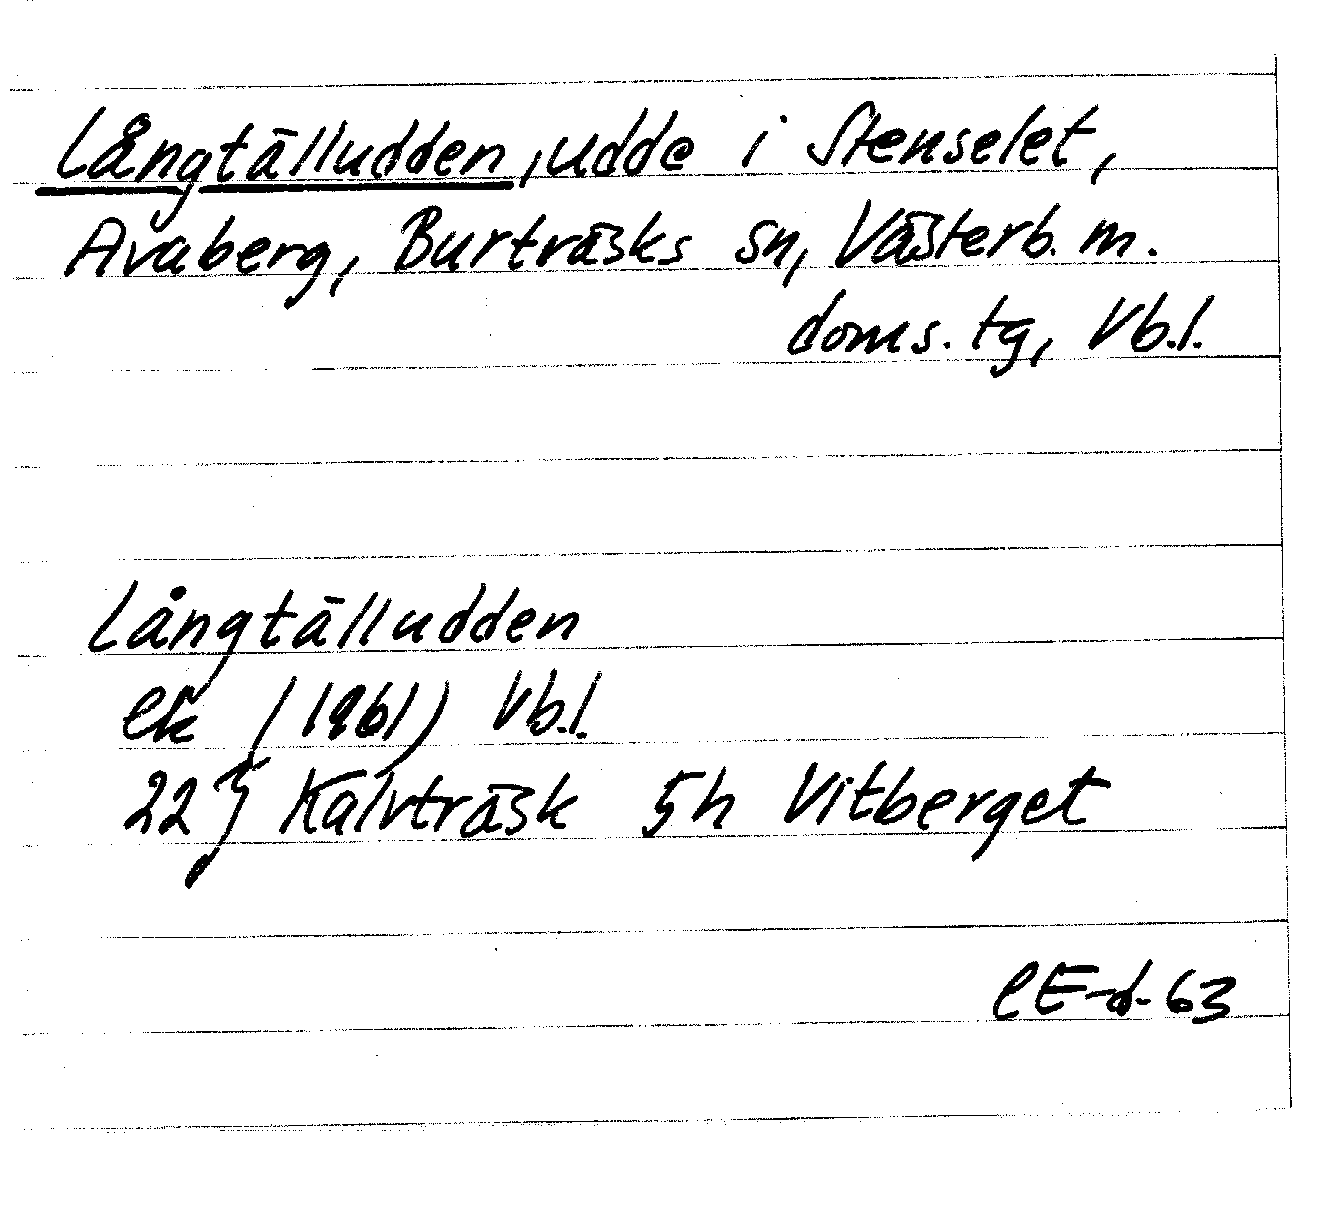 Långtälludden, udde i Stenselet,
Avaberg, Burträsks sn, Västerb. m.
doms. tg, Vb.l.
Långtälludden
ek (1961) Vb.l.
22J Kalvträsk 5h Vitberget
CE-d-63